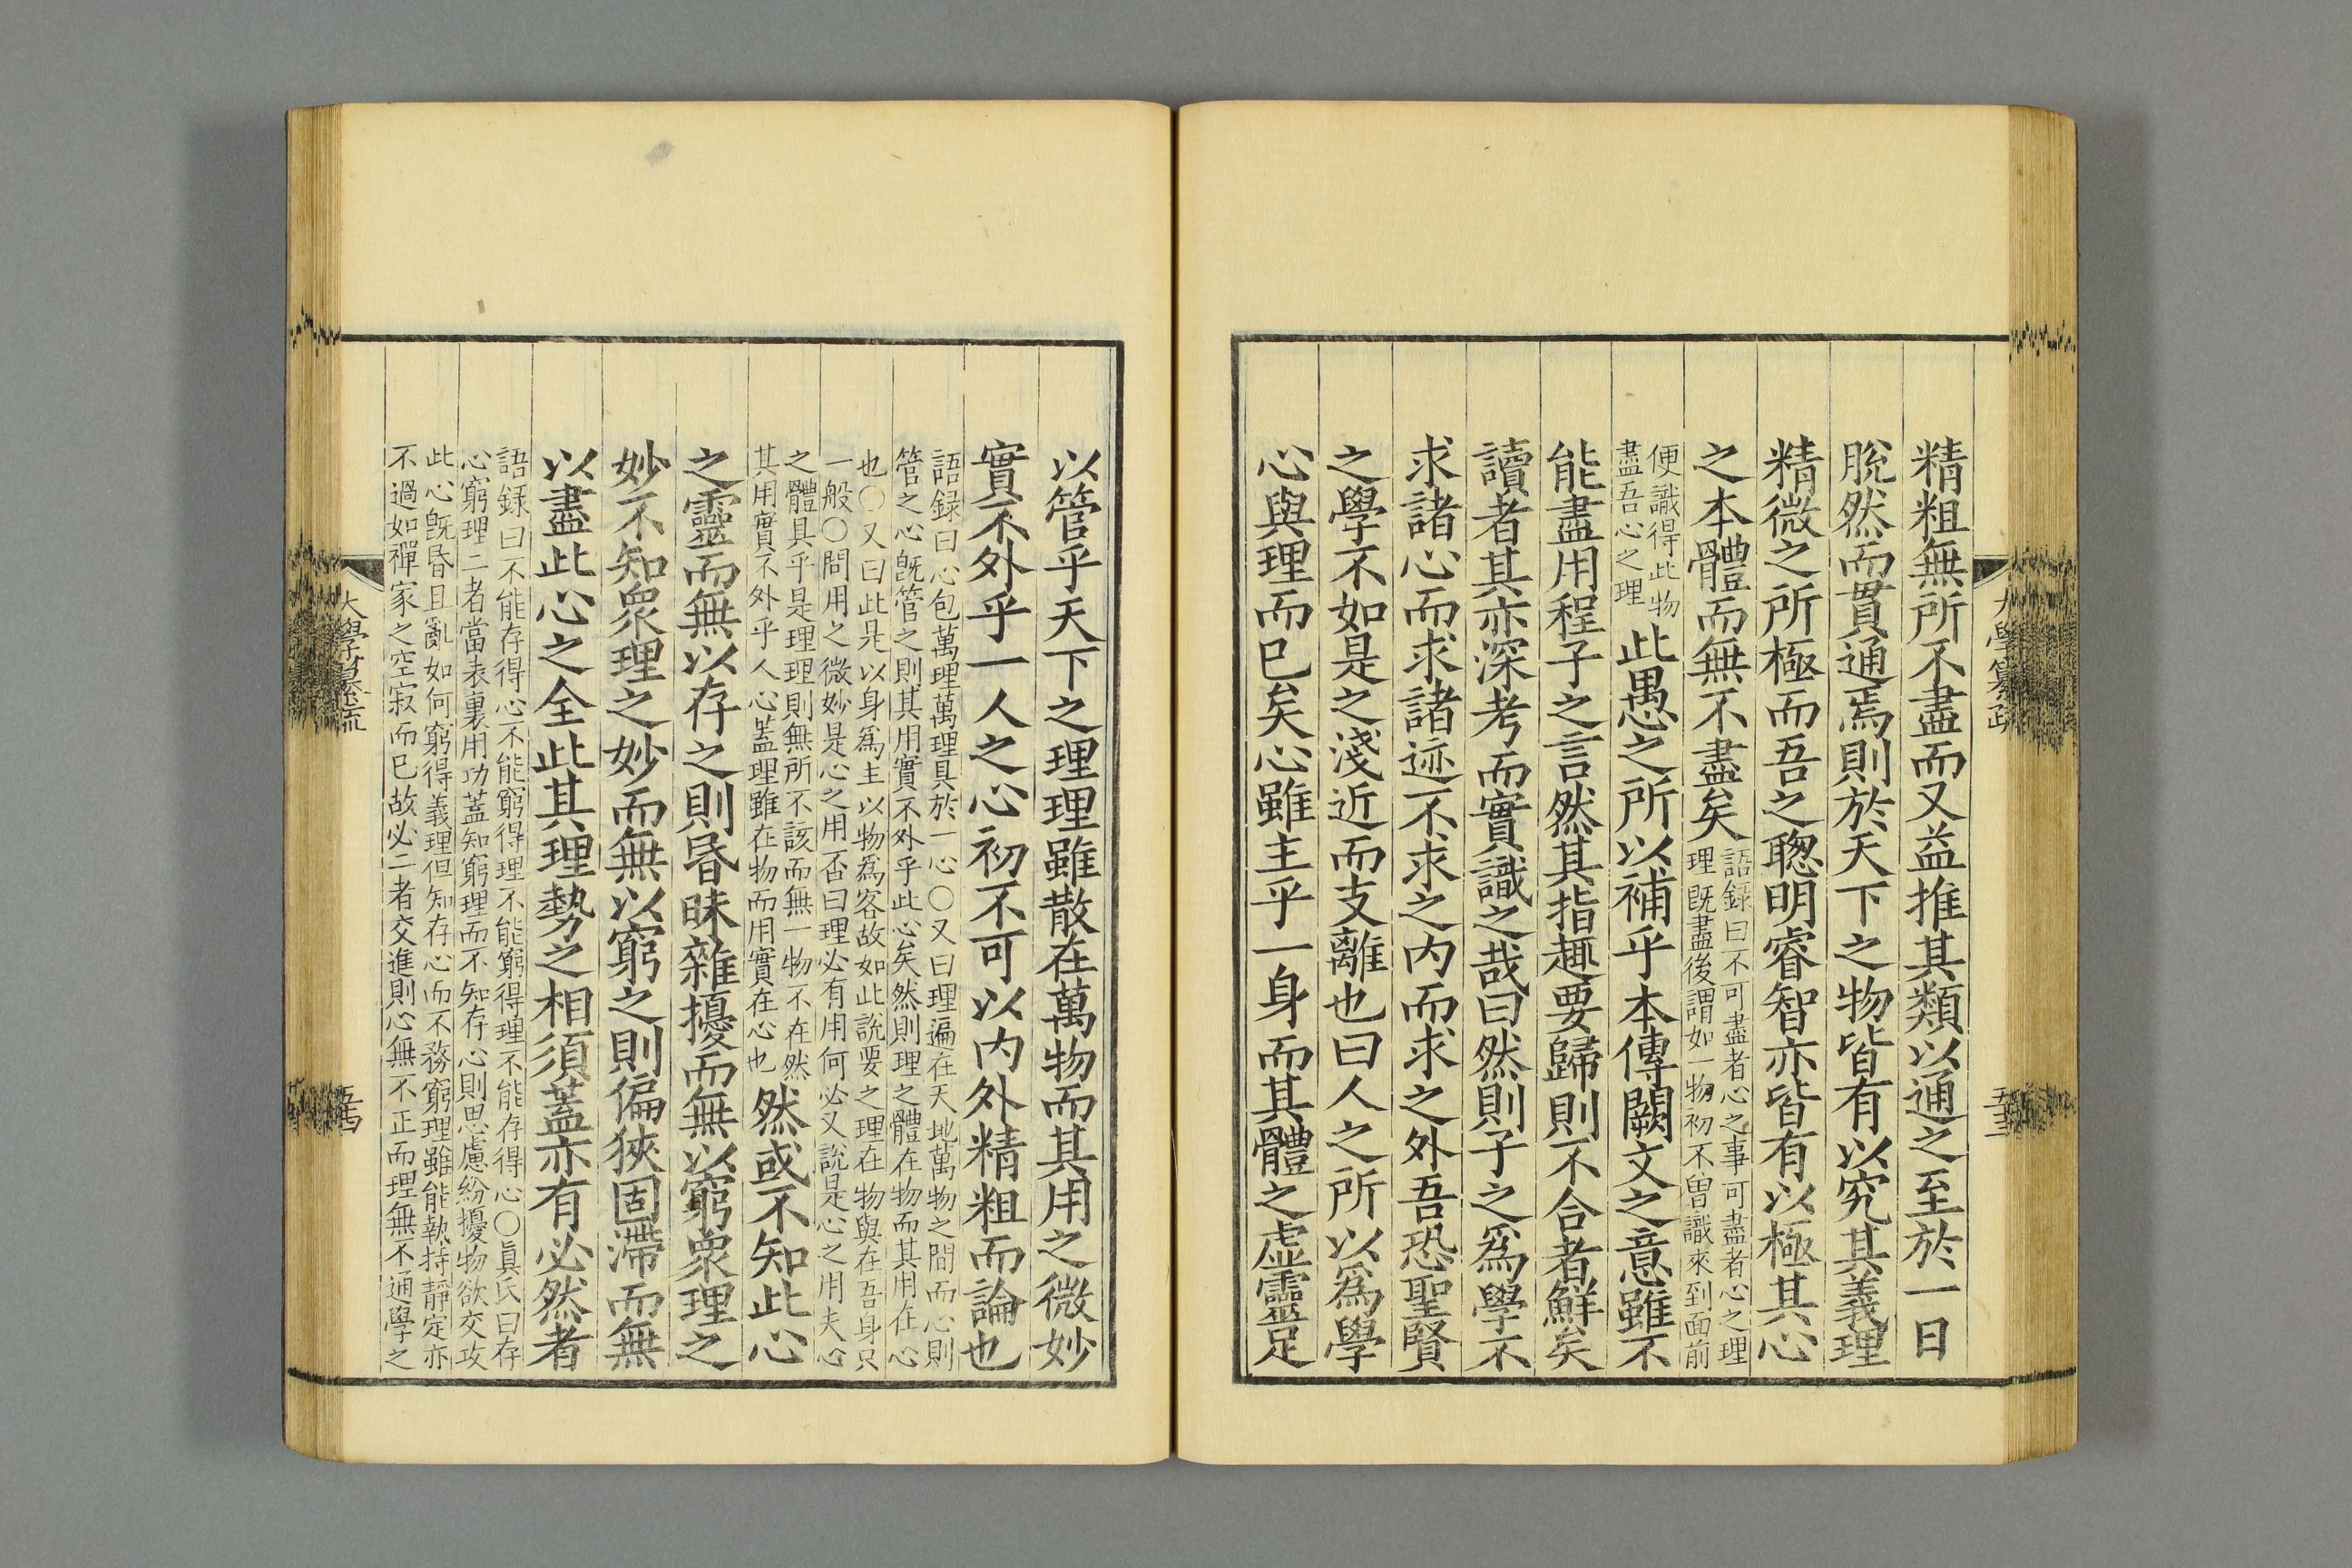 精粗無所不盡而又益推其類以通之至於一日
脫然而貫通焉則於天下之物皆有以究其義理
精微之所極而吾之聰明睿智亦皆有以極其心
之本體而無不盡矣
語録曰不可盡者心之事可盡者心之理
理既盡後謂如一物初不曽識來到面前
便識得此物
盡吾心之理
此愚之所以補乎本傳闕文之意雖不
能盡用程子之言然其指趣要歸則不合者鮮矣
讀者其亦深考而實識之哉曰然則子之爲學不
求諸心而求諸迹不求之内而求之外吾恐聖賢
之學不如是之淺近而支離也曰人之所以爲學
心與理而已矣心雖主乎一身而其體之虛靈足
大學纂疏
五十三
以管乎天下之理理雖散在萬物而其用之微妙
實不外乎一人之心初不可以内外精粗而論也
語録曰心包萬理萬理具於一心〇又曰理遍在天地萬物之間而心則
管之心既管之則其用實不外乎此心矣然則理之體在物而其用在心
也〇又曰此是以身爲主以物爲客故如此說要之理在物與在吾身只
一般〇問用之微妙是心之用否曰理必有用何必又說是心之用夫心
之體具乎是理理則無所不該而無一物不在然
其用實不外乎人心蓋理雖在物而用實在心也
然或不知此心
之靈而無以存之則昏昧雜擾而無以窮衆理之
妙不知衆理之妙而無以窮之則偏狹固滯而無
以盡此心之全此其理勢之相須蓋亦有必然者
語録曰不能存得心不能窮得理不能窮得理不能存得心〇眞氏曰存
心窮理二者當表裏用功蓋知窮理而不知存心則思慮紛擾物欲交攻
此心既昏且亂如何窮得義理但知存心而不務窮理雖能執持靜定亦
不過如禪家之空寂而已故必二者交進則心無不正而理無不通學之
大學纂疏
五十四